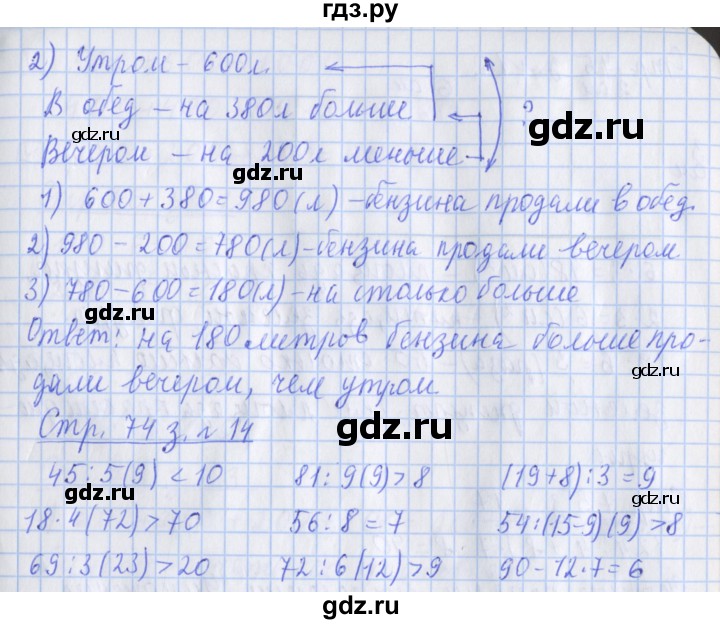 гдз.ру
2) Утром – 600л.
В обед – на 380л больше
Вечером – на 200л меньше
?
1) 600 + 380 = 980 (л) – бензина продали в обед.
2) 980 – 200 = 780 (л) – бензина продали вечером
3) 780 – 600 = 180 (л) – на столько больше
Ответ: на 180 литров бензина больше про-
дали вечером, чем утром
Стр. 74 з. № 14
45 : 5 (9) < 10   81 : 9 (9) > 8   (19 + 8) : 3 = 9
18 · 4 (72) > 70   56 : 8 = 7   54 : (15 – 9) (9) > 8
69 : 3 (23) > 20   72 : 6 (12) > 9   90 – 12 · 7 = 6
gdz.ru
gdz.ru
gdz.ru
gdz.ru
gdz.ru
gdz.ru
gdz.ru
gdz.ru
gdz.ru
gdz.ru
gdz.ru
gdz.ru
gdz.ru
gdz.ru